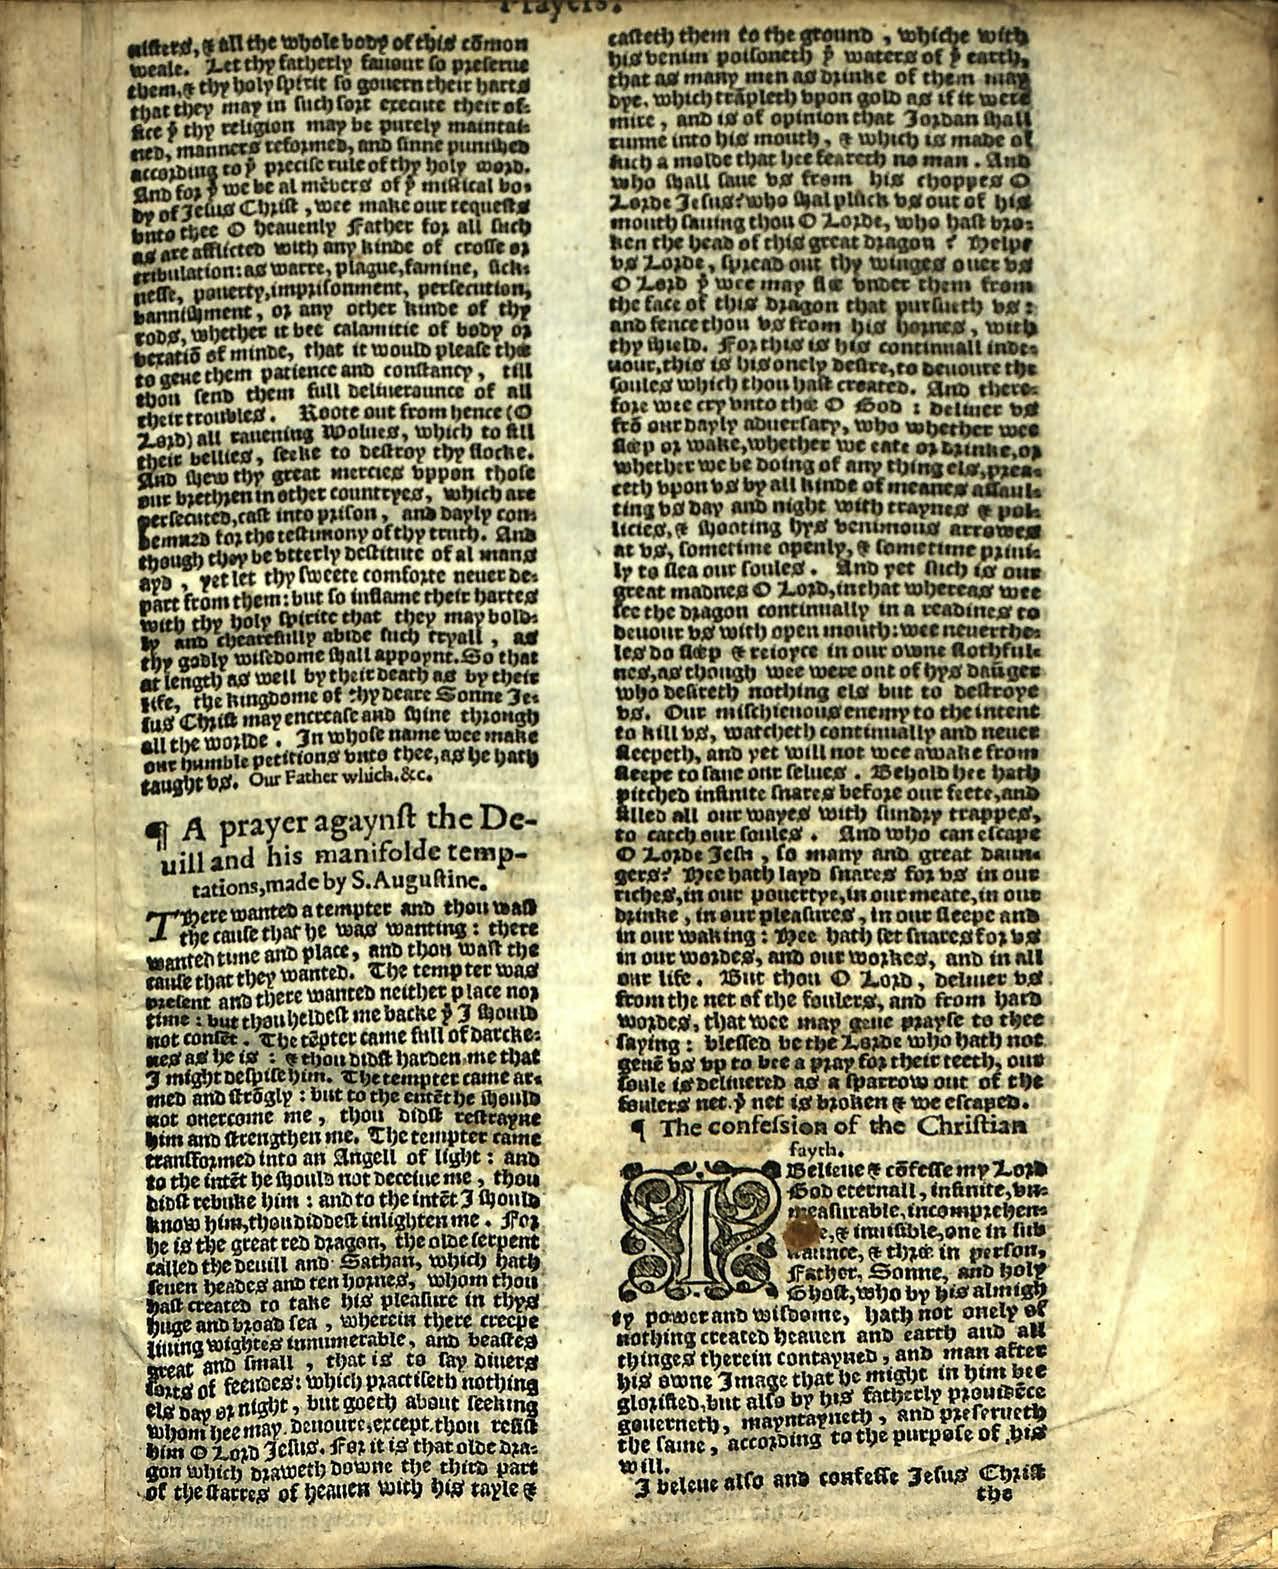 Prayers.
nisters, & all the whole body of this cōmon
weale. Let thy fatherly fauour so preserue
them, & thy holy spirit so gouern their harts
that they may in such sort execute their of-
fice yͭ thy religion may be purely maintai-
ned, manners reformed, and sinne punished
according to yͤ precise rule of thy holy word.
And for yͭ we be al mēbers of yͤ mistical bo-
dy of Jesus Christ, wee make our requests
vnto thee O heauenly Father for all such
as are afflicted with any kinde of crosse or
tribulation: as warre, plague, famine, sick-
nesse, pouerty, imprisonment, persecution,
bannishment, or any other kinde of thy
rods, whether it bee calamitie of body or
vexatiō of minde, that it would please thee
to geue them patience and constancy, till
thou send them full deliueraunce of all
their troubles. Roote out from hence (O
Lord) all rauening Wolues, which to fill
their bellies, seeke to destroy thy flocke.
And shew thy great mercies vppon those
our brethren in other countryes, which are
persecuted, cast into prison, and dayly con-
demned for the testimony of thy truth. And
though they be vtterly destitute of al mans
ayd, yet let thy sweete comforte neuer de-
part from them: but so inflame their hartes
with thy holy spirite that they may bold-
ly and chearefully abide such tryall, as
thy godly wisedome shall appoynt. So that
at length as well by their death as by their
life, the kingdome of thy deare Sonne Je-
sus Christ may encrease and shine through
all the worlde. In whose name wee make
our humble petitions vnto thee, as he hath
taught vs. Our Father which. &c.
¶ A prayer agaynst the De-
uill and his manifolde temp-
tations, made by S. Augustine.
There wanted a tempter and thou wast
the cause that he was wanting: there
wanted time and place, and thou wast the
cause that they wanted. The tempter was
present and there wanted neither place nor
time: but thou heldest me backe yͭ I should
not consēt. The tēpter came full of darcke-
nes as he is: & thou didst harden me that
I might despise him. The tempter came ar-
med and strōgly: but to the entēt he should
not ouercome me, thou didst restrayne
him and strengthen me. The tempter came
transformed into an Angell of light: and
to the intēt he should not deceiue me, thou
didst rebuke him: and to the intēt I should
know him, thou diddest inlighten me. For
he is the great red dragon, the olde serpent
called the deuill and Sathan, which hath
seuen heades and ten hornes, whom thou
hast created to take his pleasure in thys
huge and broad sea, wherein there creepe
liuing wightes innumerable, and beastes
great and small, that is to say diuers
sorts of feendes: which practiseth nothing
els day or night, but goeth about seeking
whom hee may deuoure, except thou resist
him O Lord Jesus. For it is that olde dra-
gon which draweth downe the third part
of the starres of heauen with his tayle &
casteth them to the ground, whiche with
his venim poisoneth yͤ waters of yͤ earth,
that as many men as drinke of them may
dye, which trāpleth vpon gold as if it were
mire, and is of opinion that Jordan shall
runne into his mouth, & which is made of
such a molde that hee feareth no man. And
who shall saue vs from his choppes O
Lorde Jesus? who shal pluck vs out of his
mouth sauing thou O Lorde, who hast bro-
ken the head of this great dragon? Helpe
vs Lorde, spread out thy winges ouer vs
O Lord yͭ wee may flee vnder them from
the face of this dragon that pursueth vs:
and fence thou vs from his hornes, with
thy shield. For this is his continuall inde-
uour, this is his onely desire, to deuoure the
soules which thou hast created. And there-
fore wee cry vnto thee O God: deliuer vs
frō our dayly aduersary, who whether wee
sleep or wake, whether we eate or drinke, or
whether we be doing of any thing els, prea-
ceth vpon vs by all kinde of meanes assaul-
ting vs day and night with traynes & pol-
licies, & shooting hys venimous arrowes
at vs, sometime openly, & sometime priui-
ly to slea our soules. And yet such is our
great madnes O Lord, in that whereas wee
see the dragon continually in a readines to
deuour vs with open mouth: wee neuerthe-
les do sleep & reioyce in our owne slothful-
nes, as though wee were out of hys daūger
who desireth nothing els but to destroye
vs. Our mischieuous enemy to the intent
to kill vs, watcheth continually and neuer
sleepeth, and yet will not wee awake from
sleepe to saue our selues. Behold hee hath
pitched infinite snares before our feete, and
filled all our wayes with sundry trappes,
to catch our soules. And who can escape
O Lorde Jesu, so many and great daun-
gers? Hee hath layd snares for vs in our
riches, in our pouertye, in our meate, in our
drinke, in our pleasures, in our sleepe and
in our waking: Hee hath set snares for vs
in our wordes, and our workes, and in all
our life. But thou O Lord, deliuer vs
from the net of the foulers, and from hard
wordes, that wee may geue prayse to thee
saying: blessed be the Lorde who hath not
geuē vs vp to bee a pray for their teeth, our
soule is deliuered as a sparrow out of the
foulers net. yͤ net is broken & we escaped.
¶ The confession of the Christian
fayth.
I Beleeue & cōfesse my Lord
God eternall, infinite, vn-
measurable, incomprehen-
e, & inuisible, one in sub
staunce, & three in person,
Father, Sonne, and holy
Ghost, who by his almigh
ty power and wisdome, hath not onely of
nothing created heauen and earth and all
thinges therein contayned, and man after
his owne Image that he might in him bee
glorified, but also by his fatherly prouidēce
gouerneth, mayntayneth, and preserueth
the same, according to the purpose of his
will.
I beleue also and confesse Jesus Christ
the